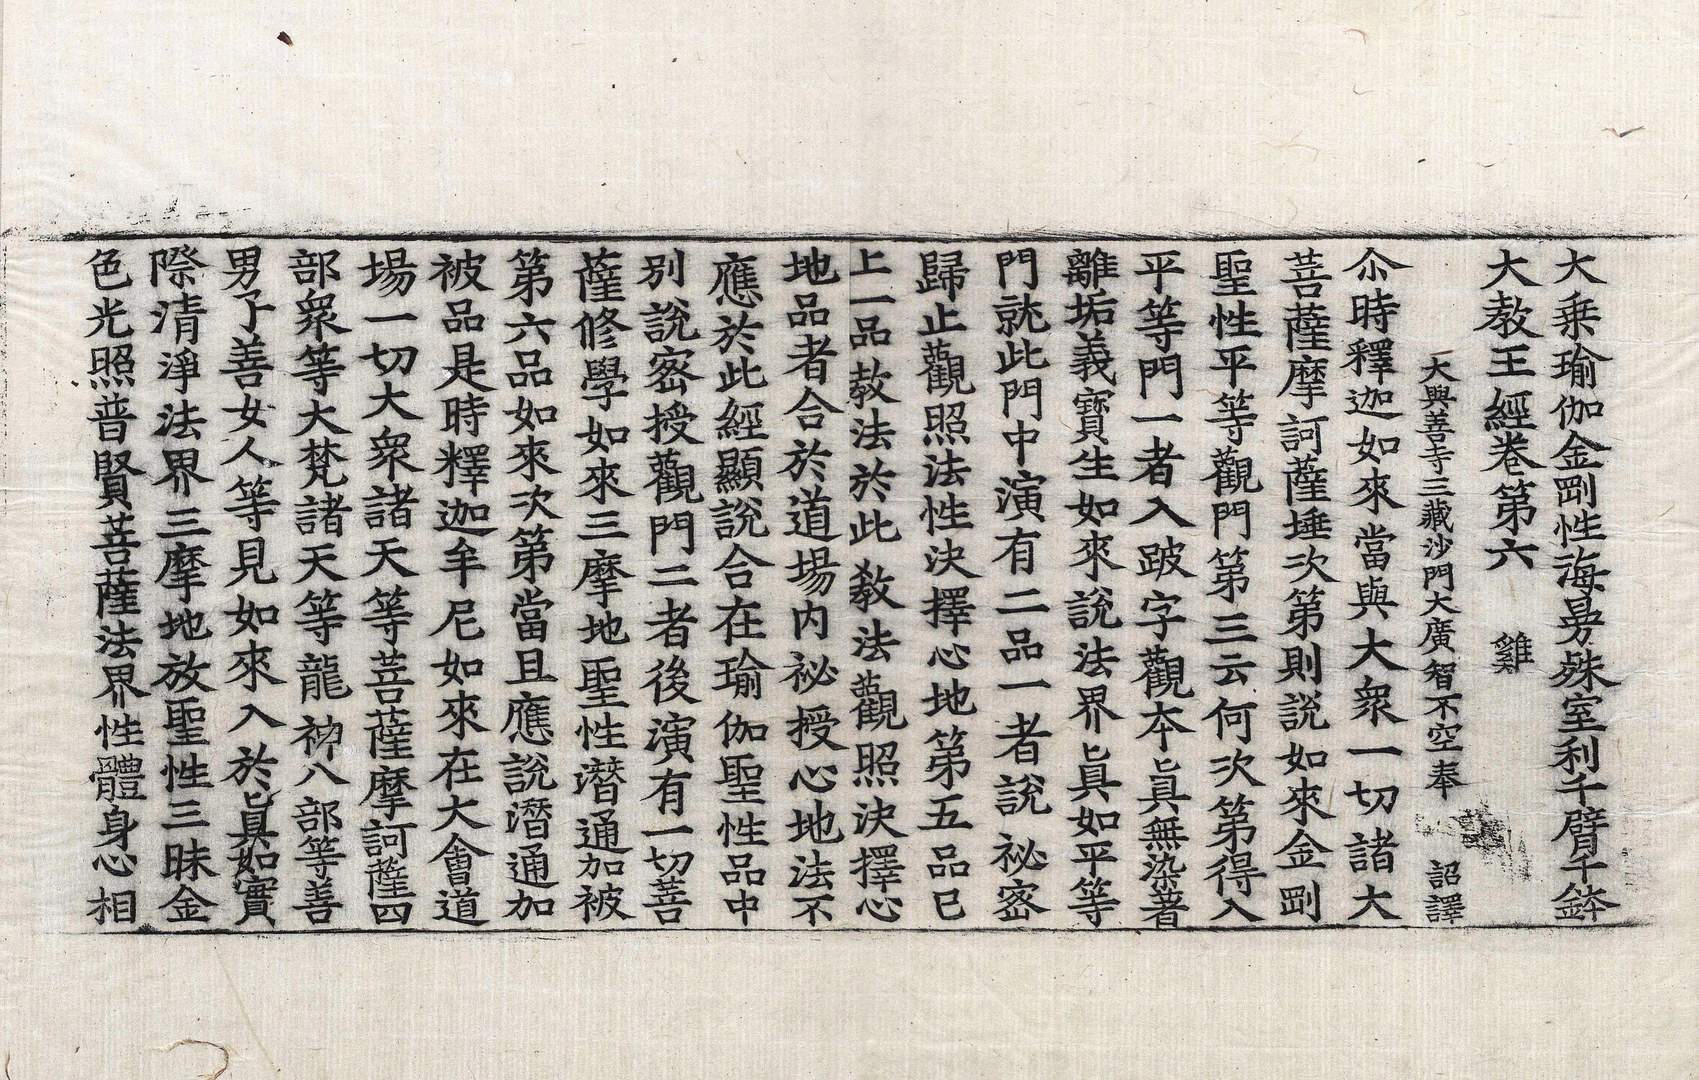 大乘瑜伽金剛性海曼殊室利千臂千鉢
大教王經卷第六　雞
大興善寺三藏沙門大廣智不空奉　詔譯
尒時釋迦如來當與大衆一切諸大
菩薩摩訶薩埵次第則說如來金剛
聖性平等觀門第三云何次第得入
平等門一者入跛字觀本眞無染著
離垢義寶生如來說法界眞如平等
門就此門中演有二品一者說祕密
歸止觀照法性決擇心地第五品已
上一品教法於此教法觀照決擇心
地品者合於道場内祕授心地法不
應於此經顯說合在瑜伽聖性品中
別說密授觀門二者後演有一切菩
薩修學如來三摩地聖性潛通加被
第六品如來次第當且應說潛通加
被品是時釋迦牟尼如來在大會道
場一切大衆諸天等菩薩摩訶薩四
部衆等大梵諸天等龍神八部等善
男子善女人等見如來入於眞如實
際清淨法界三摩地放聖性三昧金
色光照普賢菩薩法界性體身心相